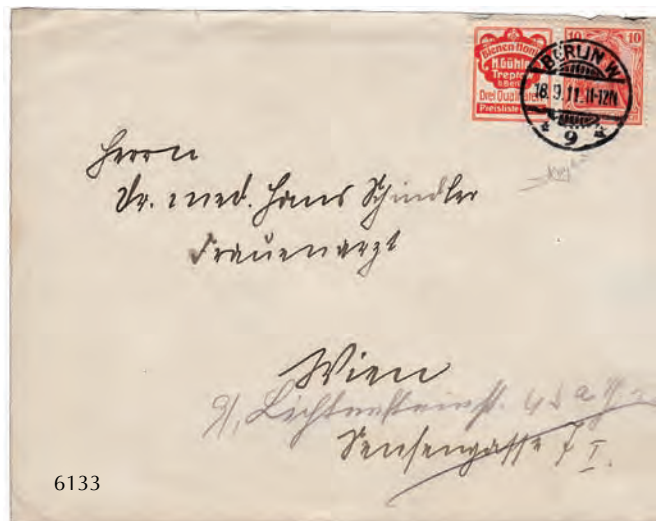 Bienen Honig
H. Gühler
Treptow
b. Berl
Drei Qualitäten
Preisliste
10 10
BERLIN W
18.9.11. 11-12N
* 9 *
Herrn
Dr. med. Hans Schindler
Frauenarzt
Wien
9/, Lichtensteinst.
Sensengasse 7 I.
6133